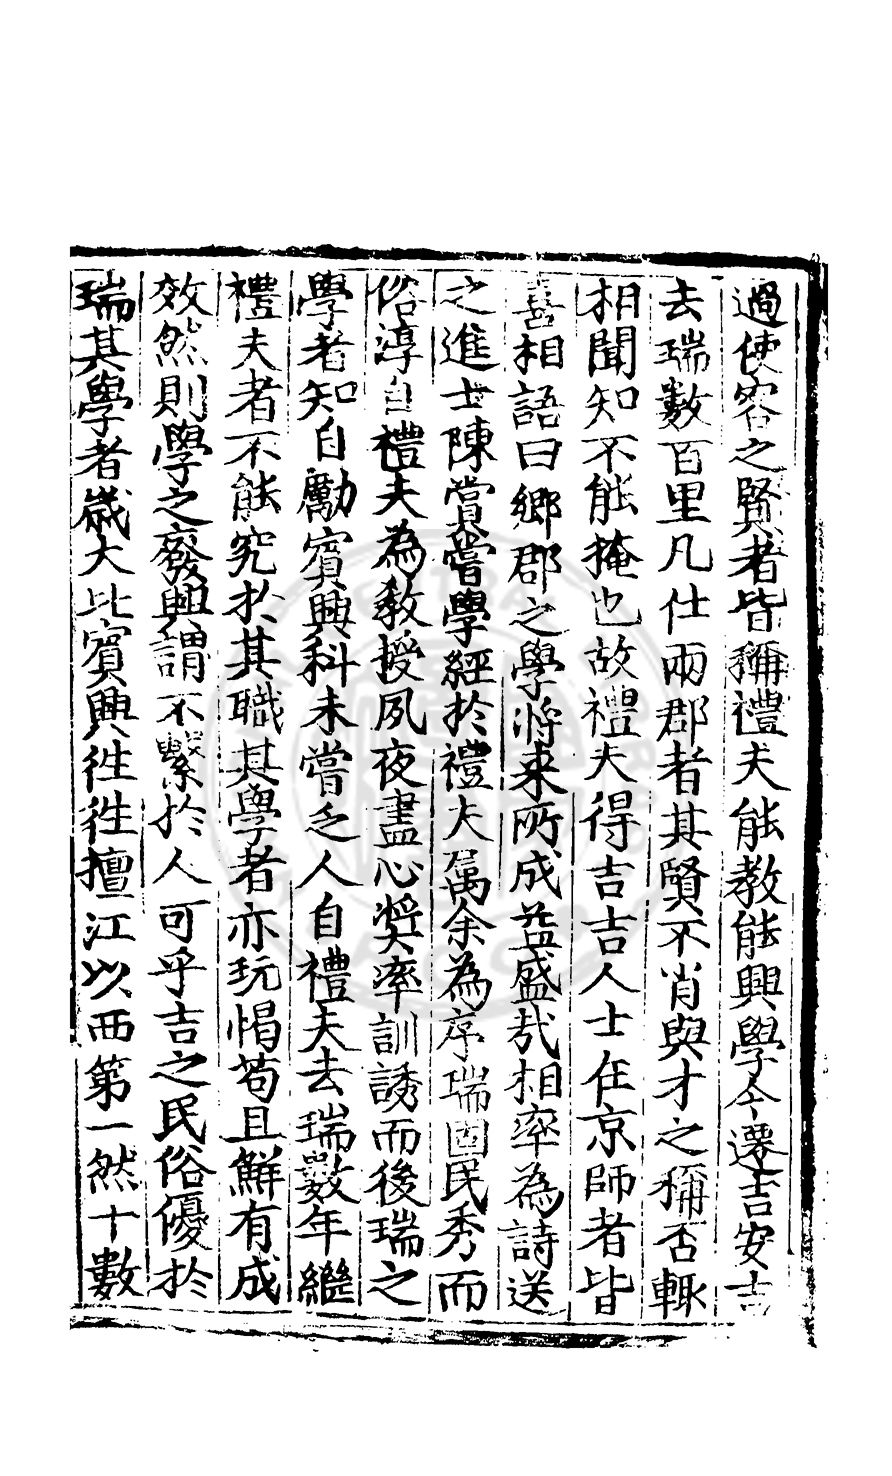 過使客之賢者皆稱禮夫能教能興學今遷吉安吉
去瑞數百里凡仕兩郡者其賢不肖與才之稱否輙
相聞知不能掩也故禮夫得吉吉人士任京師者皆
喜相語曰鄉郡之學將来所成益盛㦲相率為詩送
之進士陳賞嘗學經於禮夫属余為序瑞固民秀而
俗淳自禮夫為教授夙夜盡心奬率訓誘而後瑞之
學者知自勵賓興科未嘗乏人自禮夫去瑞數年繼
禮夫者不能究於其職其學者亦玩愒苟且鮮有成
效然則學之廢興謂不繫於人可乎吉之民俗優於
瑞其學者歲大比賓興徃徃擅江以西第一然十數